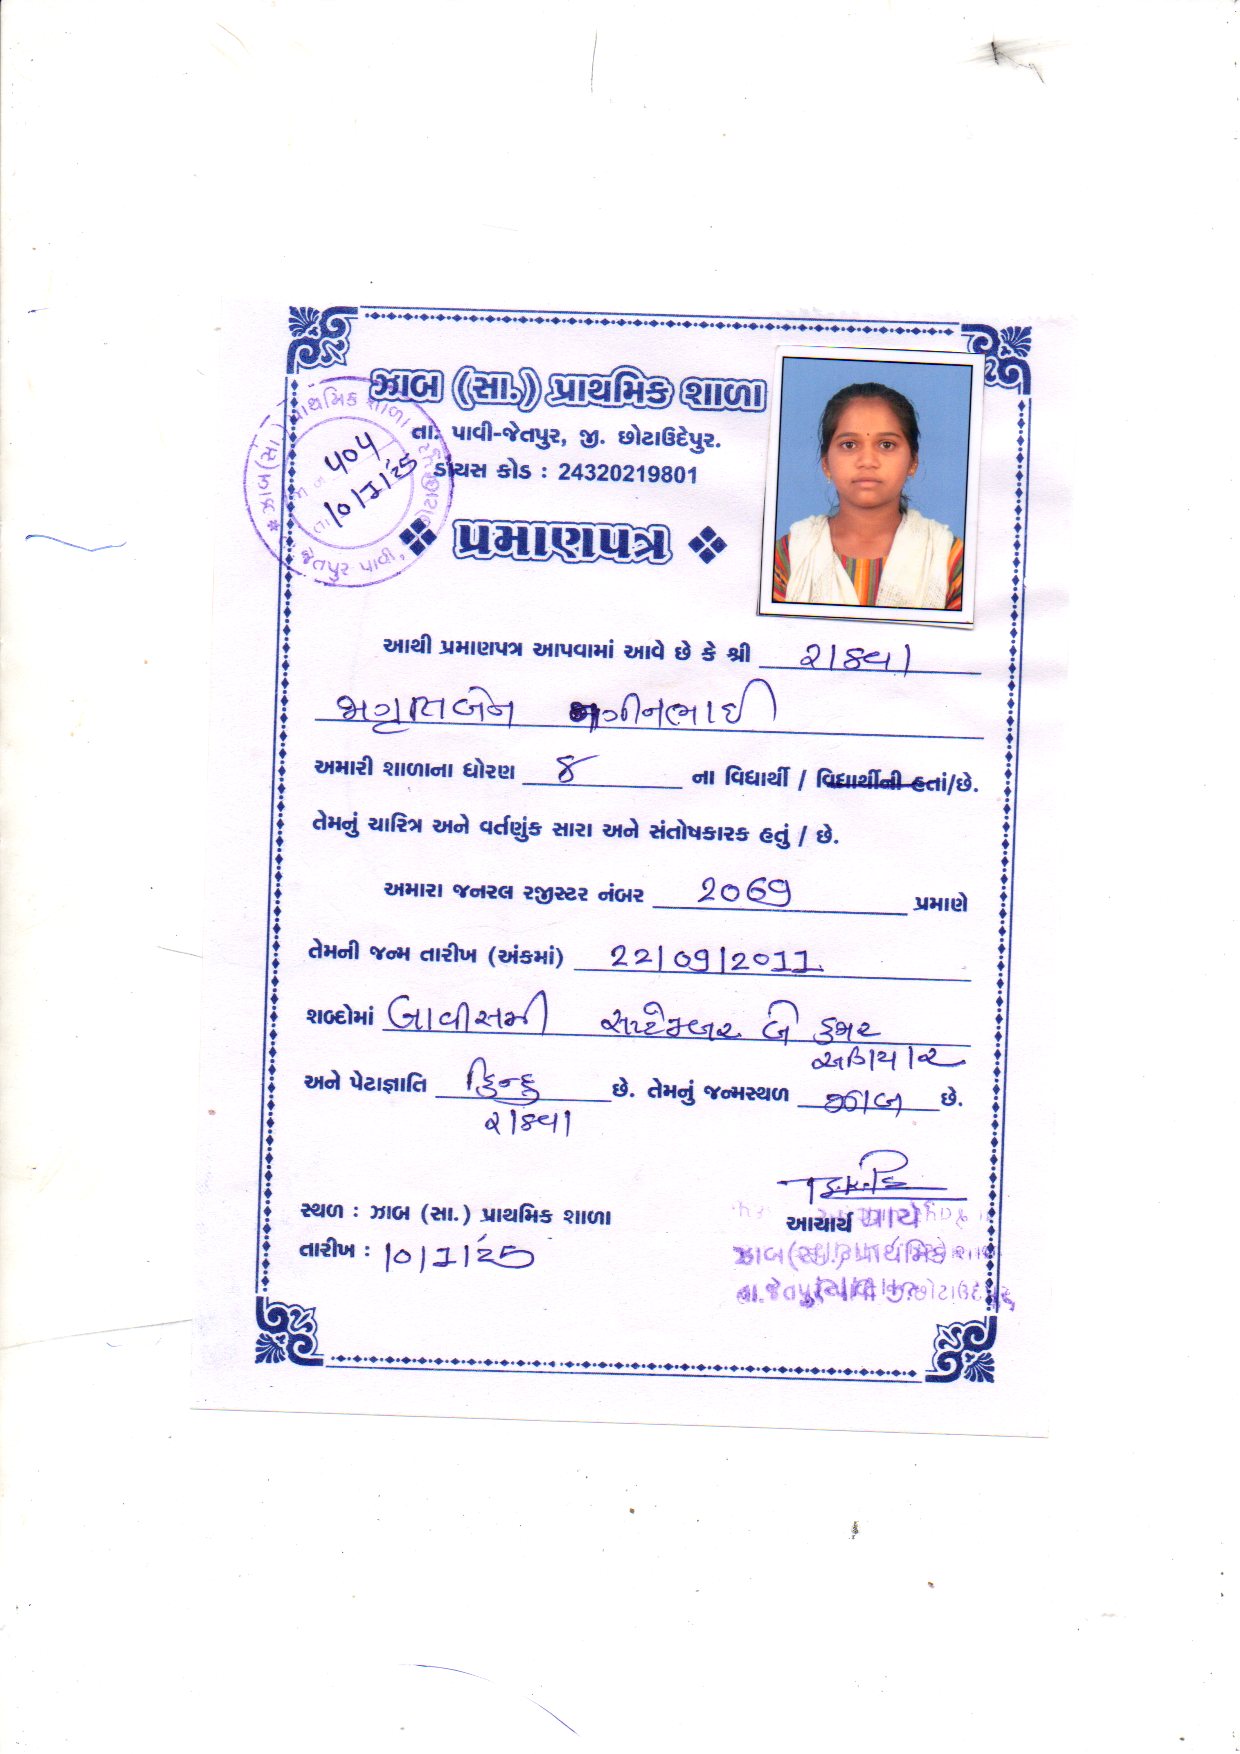 ઝાબ (સા.) પ્રાથમિક શાળા
તા. પાવી-જેતપુર, જી. છોટાઉદેપુર.
ડાયસ કોડ : 24320219801
ઝાબ(સા.) પ્રાથમિક શાળા
જા.ન. ૫૦૫
તા. 10/1/25
જેતપુર પાવી,
પ્રમાણપત્ર
આથી પ્રમાણપત્ર આપવામાં આવે છે કે શ્રી રાઠવા
જાગૃતિબેન નગીનભાઈ
અમારી શાળાના ધોરણ 8 ના વિદ્યાર્થી / વિદ્યાર્થીની હતાં/છે.
તેમનું ચારિત્ર અને વર્તણુંક સારા અને સંતોષકારક હતું / છે.
અમારા જનરલ રજીસ્ટર નંબર 2069 પ્રમાણે
તેમની જન્મ તારીખ (અંકમાં) 22/09/2011
શબ્દોમાં બાવીસમી સપ્ટેમ્બર બે હજાર
અગિયાર
અને પેટાજ્ઞાતિ હિન્દુ છે. તેમનું જન્મસ્થળ ઝાબ છે.
રાઠવા
સ્થળ : ઝાબ (સા.) પ્રાથમિક શાળા
આચાર્ય
તારીખ : 10/1/25
ઝાબ(સા.) પ્રાથમિક શાળા
તા.જેતપુર પાવી જી.છોટાઉદેપુર